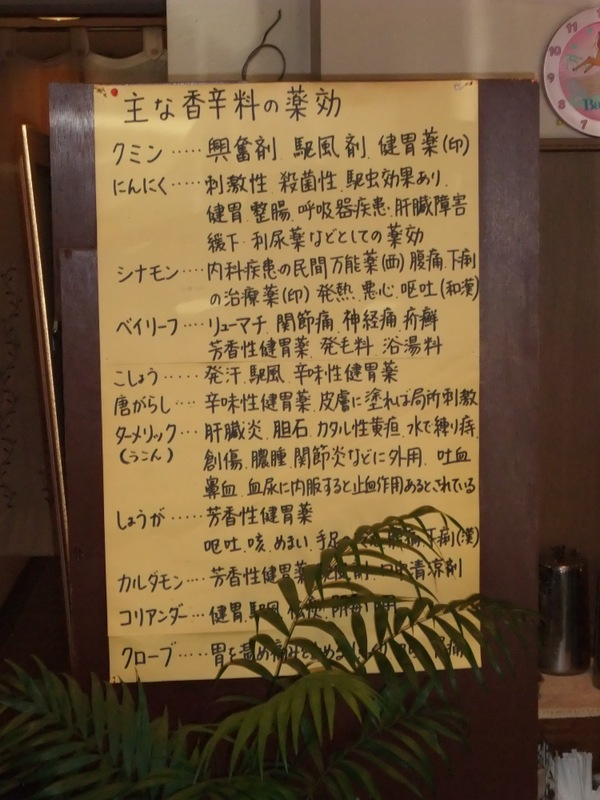 主な香辛料の薬効
クミン‥‥‥興奮剤、駆風剤、健胃薬(印)
にんにく‥‥‥刺激性、殺菌性、駆虫効果あり、
健胃、整腸、呼吸器疾患、肝臓障害
緩下、利尿薬などとしての薬効
シナモン‥‥‥内科疾患の民間万能薬(西)腹痛、下痢
の治療薬(印)発熱、悪心、呕吐(和漢)
ベイリーフ‥‥リューマチ、関節痛、神経痛、疥癬
芳香性健胃薬、発毛料、浴湯料
こしょう‥‥‥発汗、駆風、辛味性健胃薬
唐がらし‥‥‥辛味性健胃薬、皮膚に塗れば局所刺激
ターメリック‥‥肝臓炎、胆石、カタル性黄疸、水で練り痔、
(うこん)創傷、膿腫、関節炎などに外用、吐血
鼻血、血尿に内服すると止血作用あるとされている
しょうが‥‥‥芳香性健胃薬
呕吐、咳、めまい、手足 下痢(漢)
カルダモン‥‥芳香性健胃薬 清涼剤
コリアンダー‥‥健胃、駆風
クローブ‥‥‥胃を温め痛みを止める
10
11
12
9
8
7